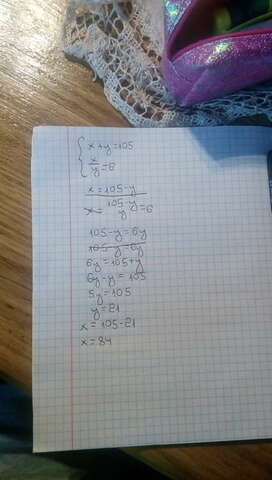 x+y=105
x/y=6
x=105-y
105-y/y=6
105-y=6y
6y=105+y
6y-y=105
5y=105
y=21
x=105-21
x=84